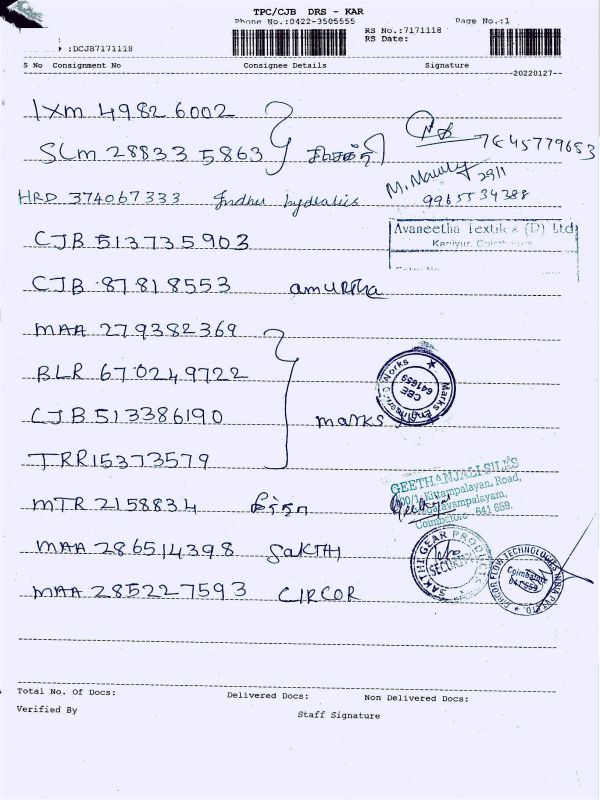 TPC/CJB DRS - KAR
Phone No.:0422-3505555
Page No.:1
RS No.:7171118
RS Date:
:DCJB7171118
S No Consignment No Consignee Details Signature
20220127
IXM 49826002
SLM 288335863
7645779653
HRD 374067333 Indhu hydralics
9965534388
CJB 513735903
Avaneetha Textile (P) Ltd
Kaniyur, Coimbatore
CJB 87818553 amurtha
MAA 279382369
BLR 670249722
Marks Engineering Works
CBE
641659
CJB 513386190 marks
TRR15373579
GEETHANJALI SILKS
Kittampalayan, Road,
Coimbatore - 641 659.
MTR 2158834
MAA 286514398 SAKTHI
SAKTHI GEAR PRODUCTS
SECURITY
MAA 285227593 CIRCOR
CIRCOR FLOW TECHNOLOGIES INDIA PVT LTD.
Coimbatore
641659
Total No. Of Docs: Delivered Docs: Non Delivered Docs:
Verified By Staff Signature